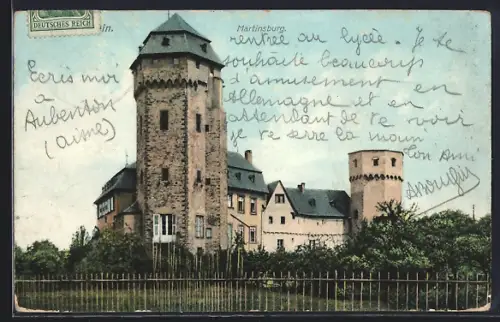 DEUTSCHES REICH
in.
Martinsburg.
rentrée au lycée. Je te
souhaite beaucoup
d'amusement en
Allemagne et en
attendant de te voir
je te serre la main
Ton ami
Ecris moi
à
Aubenton
(aisne)